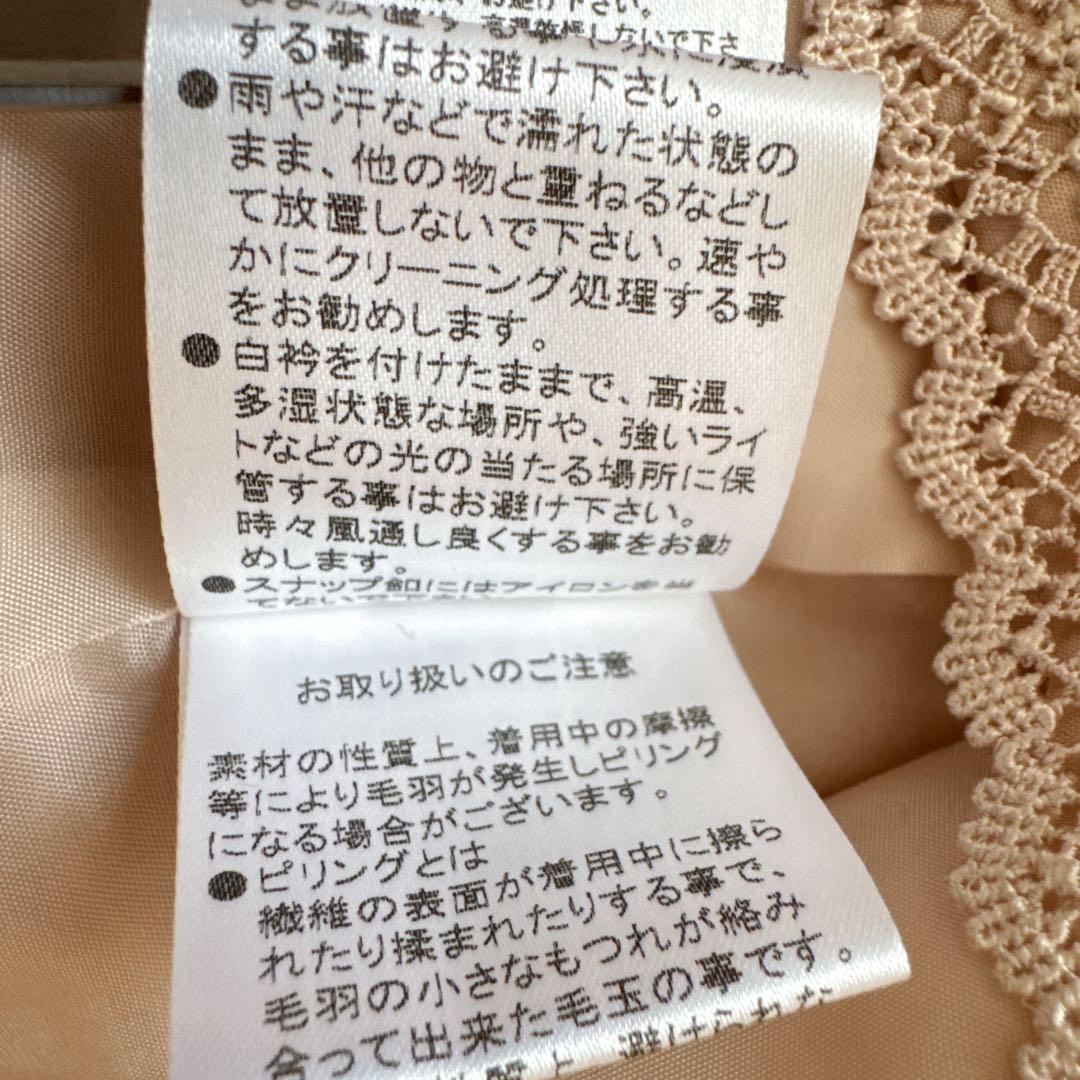 お避け下さい。
しないで下さ
する事はお避け下さい。
●雨や汗などで濡れた状態の
まま、他の物と重ねるなどし
て放置しないで下さい。速や
かにクリーニング処理する事
をお勧めします。
●白衿を付けたままで、高温、
多湿状態な場所や、強いライ
トなどの光の当たる場所に保
管する事はお避け下さい。
時々風通し良くする事をお勧
めします。
●スナップ釦にはアイロンを当
お取り扱いのご注意
素材の性質上、着用中の摩擦
等により毛羽が発生しピリング
になる場合がございます。
●ピリングとは
繊維の表面が着用中に擦ら
れたり揉まれたりする事で、
毛羽の小さなもつれが絡み
合って出来た毛玉の事です。
避けられな